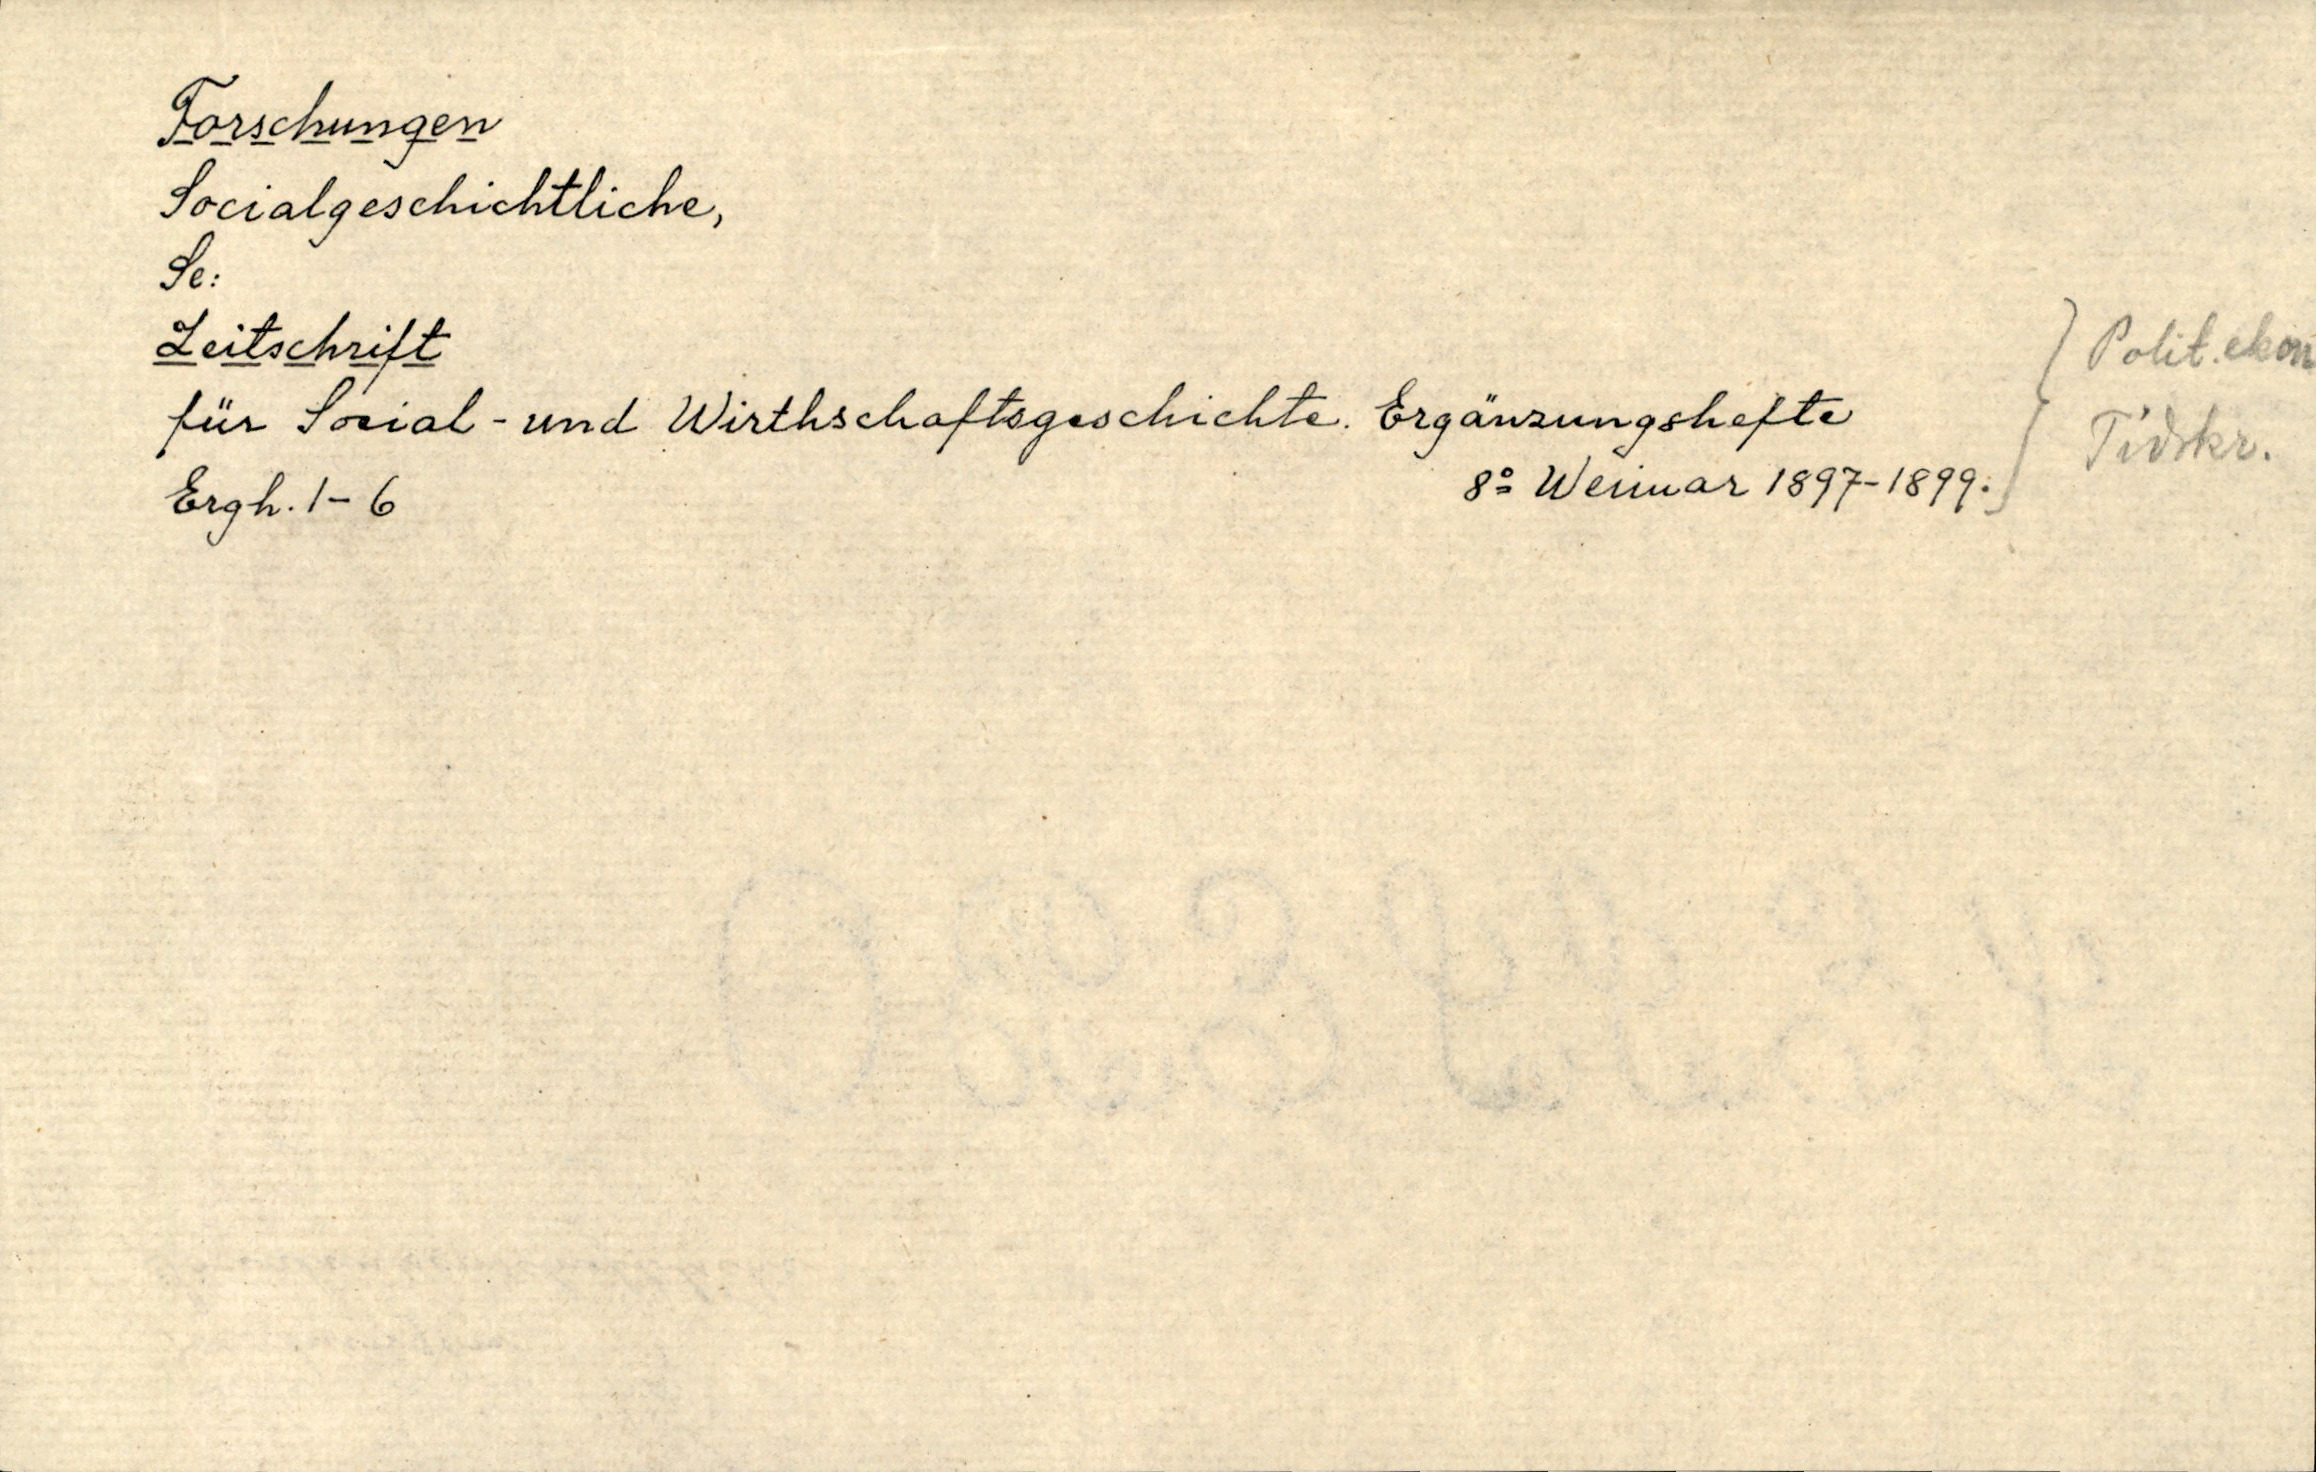 Forschungen
Socialgeschichtliche,
Se:
Zeitschrift
für Social- und Wirthschaftsgeschichte. Ergänzungshefte
Ergh. 1-6 8:o Weimar 1897-1899.
Polit. ekon
Tidskr.